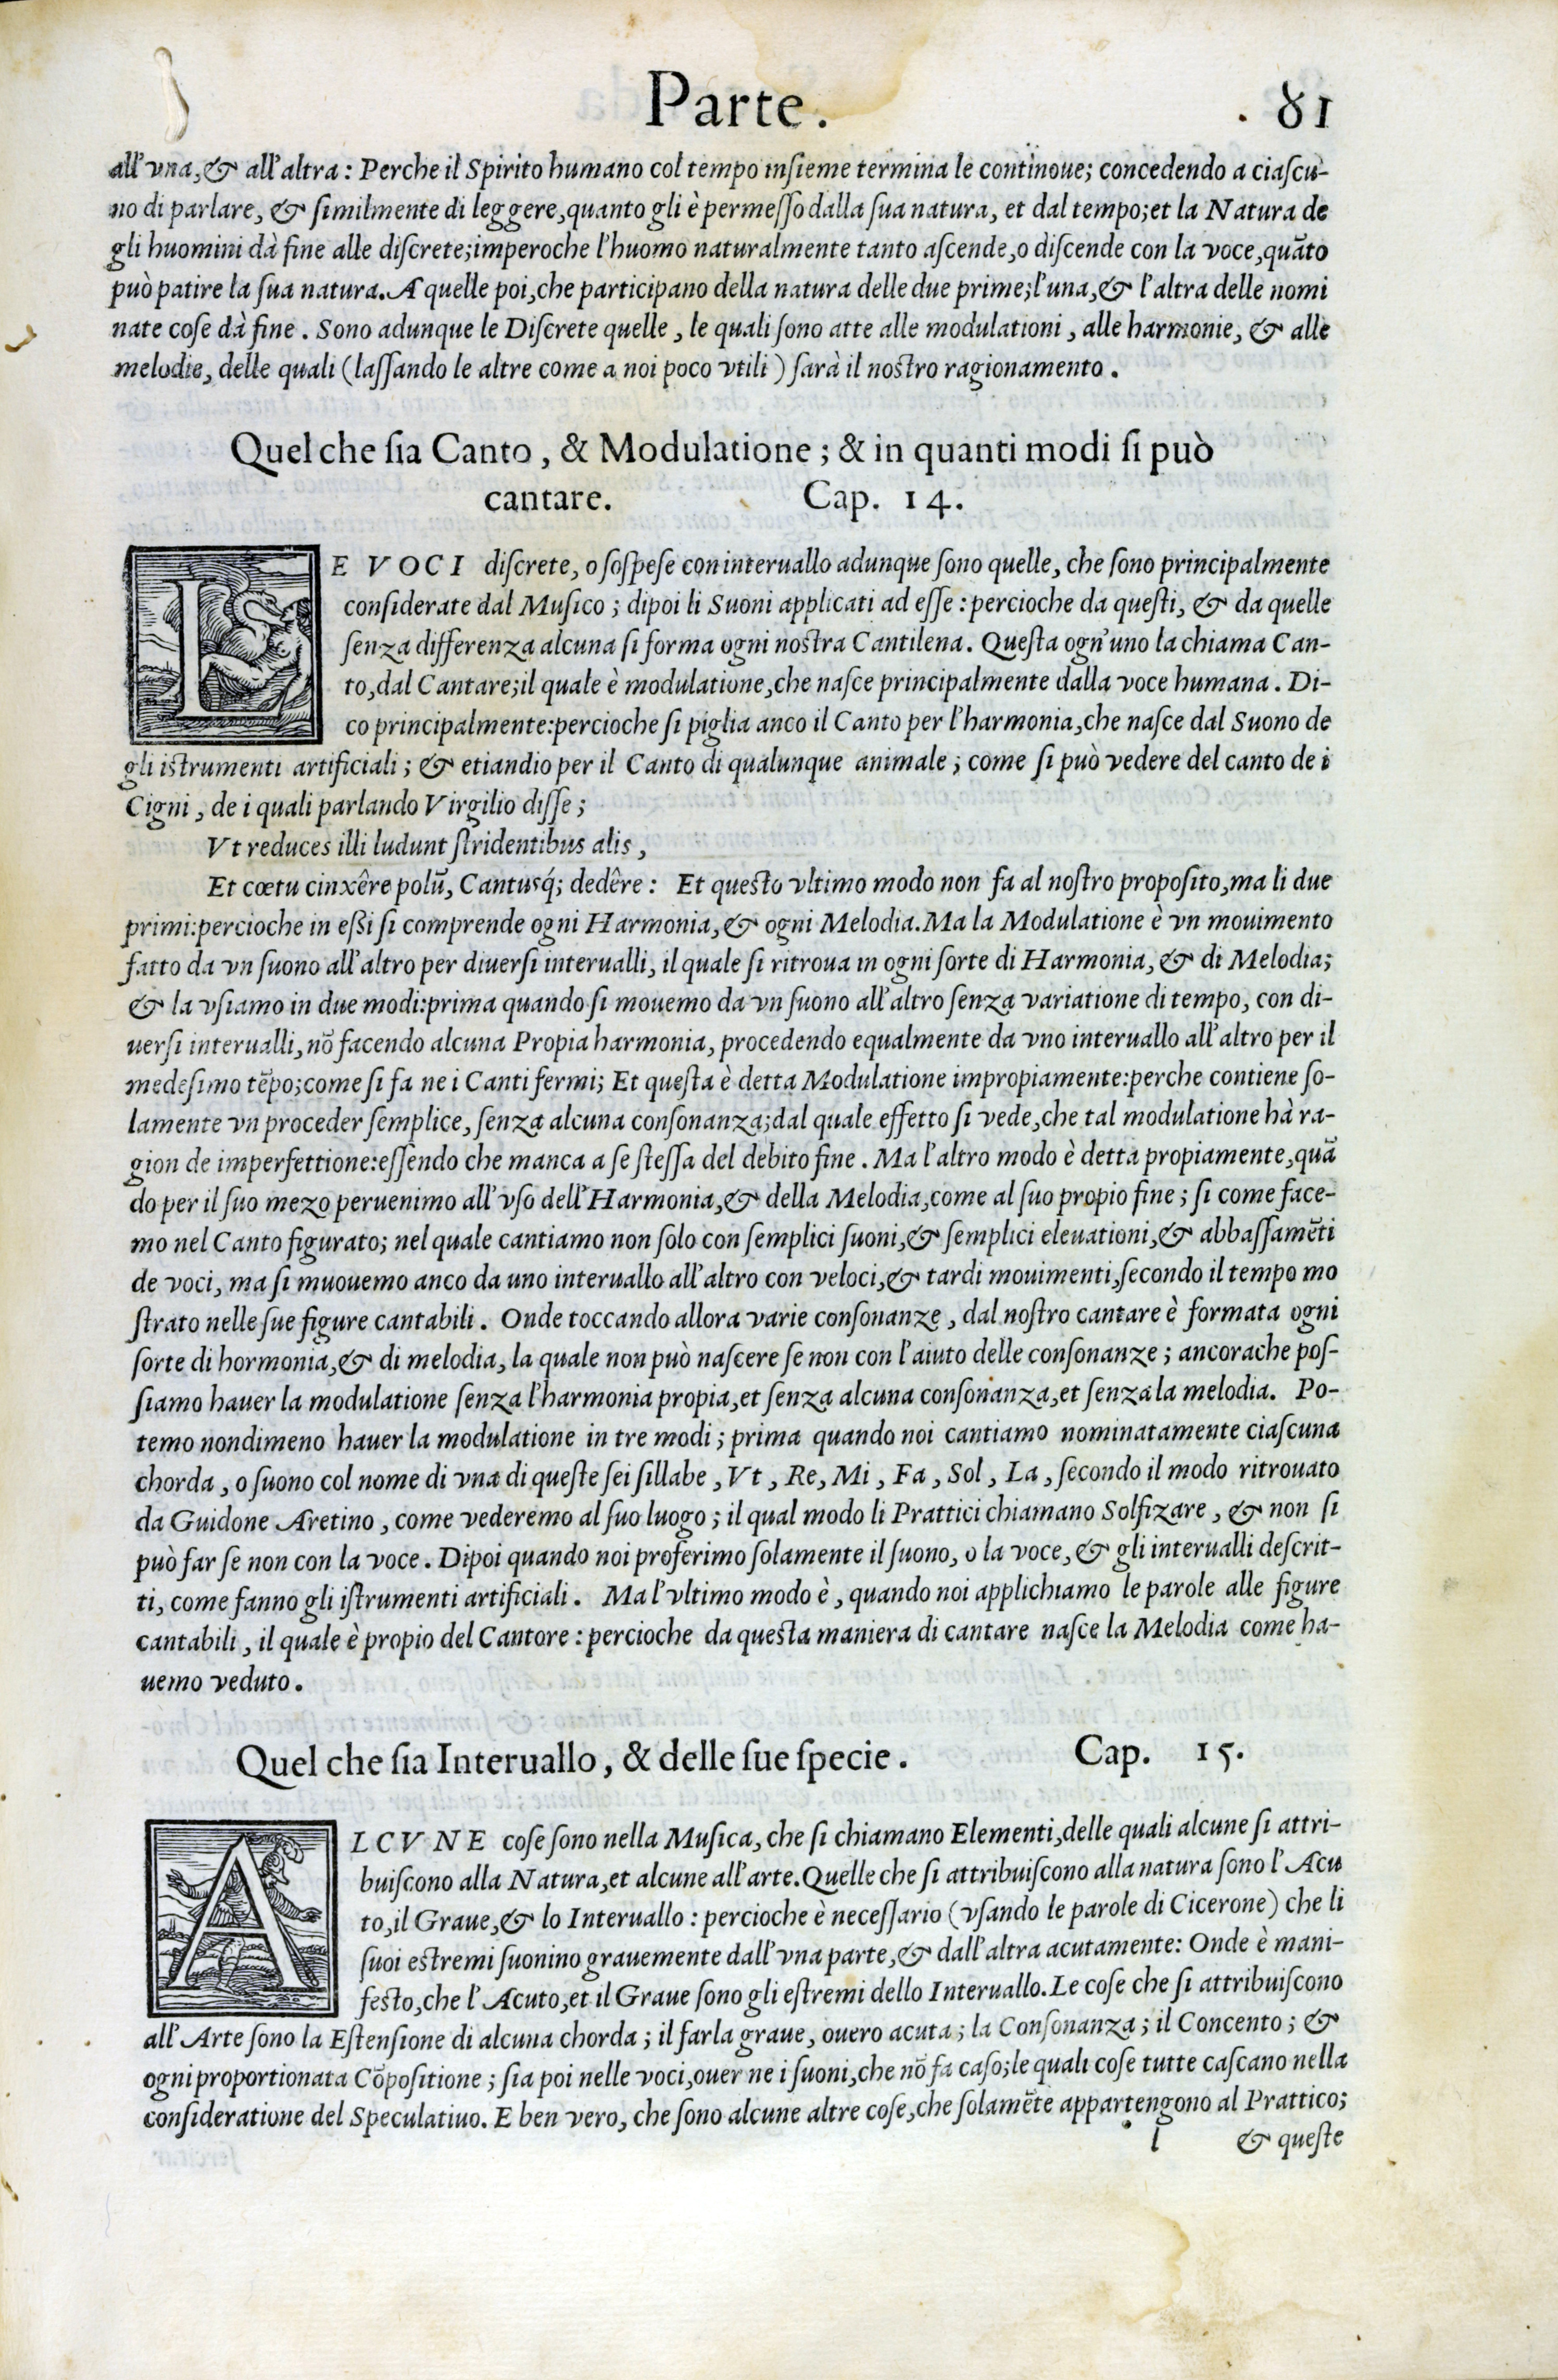 Parte. 81
all'vna, & all'altra: Perche il Spirito humano col tempo insieme termina le continoue; concedendo a ciascu-
no di parlare, & similmente di leggere, quanto gli è permesso dalla sua natura, et dal tempo; et la Natura de
gli huomini dà fine alle discrete; imperoche l'huomo naturalmente tanto ascende, o discende con la voce, quāto
può patire la sua natura. A quelle poi, che participano della natura delle due prime; l'una, & l'altra delle nomi
nate cose dà fine. Sono adunque le Discrete quelle, le quali sono atte alle modulationi, alle harmonie, & alle
melodie, delle quali (lassando le altre come a noi poco vtili) sarà il nostro ragionamento.
Quel che sia Canto, & Modulatione; & in quanti modi si può
cantare. Cap. 14.
LE VOCI discrete, o sospese con interuallo adunque sono quelle, che sono principalmente
considerate dal Musico; dipoi li Suoni applicati ad esse: percioche da questi, & da quelle
senza differenza alcuna si forma ogni nostra Cantilena. Questa ogn'uno la chiama Can-
to, dal Cantare; il quale è modulatione, che nasce principalmente dalla voce humana. Di-
co principalmente: percioche si piglia anco il Canto per l'harmonia, che nasce dal Suono de
gli istrumenti artificiali; & etiandio per il Canto di qualunque animale; come si può vedere del canto de i
Cigni, de i quali parlando Virgilio disse;
Vt reduces illi ludunt stridentibus alis,
Et cœtu cinxêre polū, Cantusq́; dedêre: Et questo vltimo modo non fa al nostro proposito, ma li due
primi: percioche in essi si comprende ogni Harmonia, & ogni Melodia. Ma la Modulatione è vn mouimento
fatto da vn suono all'altro per diuersi interualli, il quale si ritroua in ogni sorte di Harmonia, & di Melodia;
& la vsiamo in due modi: prima quando si mouemo da vn suono all'altro senza variatione di tempo, con di-
uersi interualli, nō facendo alcuna Propia harmonia, procedendo equalmente da vno interuallo all'altro per il
medesimo tēpo; come si fa ne i Canti fermi; Et questa è detta Modulatione impropiamente: perche contiene so-
lamente vn proceder semplice, senza alcuna consonanza; dal quale effetto si vede, che tal modulatione hà ra-
gion de imperfettione: essendo che manca a se stessa del debito fine. Ma l'altro modo è detta propiamente, quā
do per il suo mezo peruenimo all'vso dell'Harmonia, & della Melodia, come al suo propio fine; si come face-
mo nel Canto figurato; nel quale cantiamo non solo con semplici suoni, & semplici eleuationi, & abbassamēti
de voci, ma si muouemo anco da uno interuallo all'altro con veloci, & tardi mouimenti, secondo il tempo mo
strato nelle sue figure cantabili. Onde toccando allora varie consonanze, dal nostro cantare è formata ogni
sorte di hormonia, & di melodia, la quale non può nascere se non con l'aiuto delle consonanze; ancorache pos-
siamo hauer la modulatione senza l'harmonia propia, et senza alcuna consonanza, et senza la melodia. Po-
temo nondimeno hauer la modulatione in tre modi; prima quando noi cantiamo nominatamente ciascuna
chorda, o suono col nome di vna di queste sei sillabe, Vt, Re, Mi, Fa, Sol, La, secondo il modo ritrouato
da Guidone Aretino, come vederemo al suo luogo; il qual modo li Prattici chiamano Solfizare, & non si
può far se non con la voce. Dipoi quando noi proferimo solamente il suono, o la voce, & gli interualli descrit-
ti, come fanno gli istrumenti artificiali. Ma l'vltimo modo è, quando noi applichiamo le parole alle figure
cantabili, il quale è propio del Cantore: percioche da questa maniera di cantare nasce la Melodia come ha-
uemo veduto.
Quel che sia Interuallo, & delle sue specie. Cap. 15.
ALCVNE cose sono nella Musica, che si chiamano Elementi, delle quali alcune si attri-
buiscono alla Natura, et alcune all'arte. Quelle che si attribuiscono alla natura sono l'Acu
to, il Graue, & lo Interuallo: percioche è necessario (vsando le parole di Cicerone) che li
suoi estremi suonino grauemente dall'vna parte, & dall'altra acutamente: Onde è mani-
festo, che l'Acuto, et il Graue sono gli estremi dello Interuallo. Le cose che si attribuiscono
all'Arte sono la Estensione di alcuna chorda; il farla graue, ouero acuta; la Consonanza; il Concento; &
ogni proportionata Cōpositione; sia poi nelle voci, ouer ne i suoni, che nō fa caso; le quali cose tutte cascano nella
consideratione del Speculatiuo. E ben vero, che sono alcune altre cose, che solamēte appartengono al Prattico;
l & queste